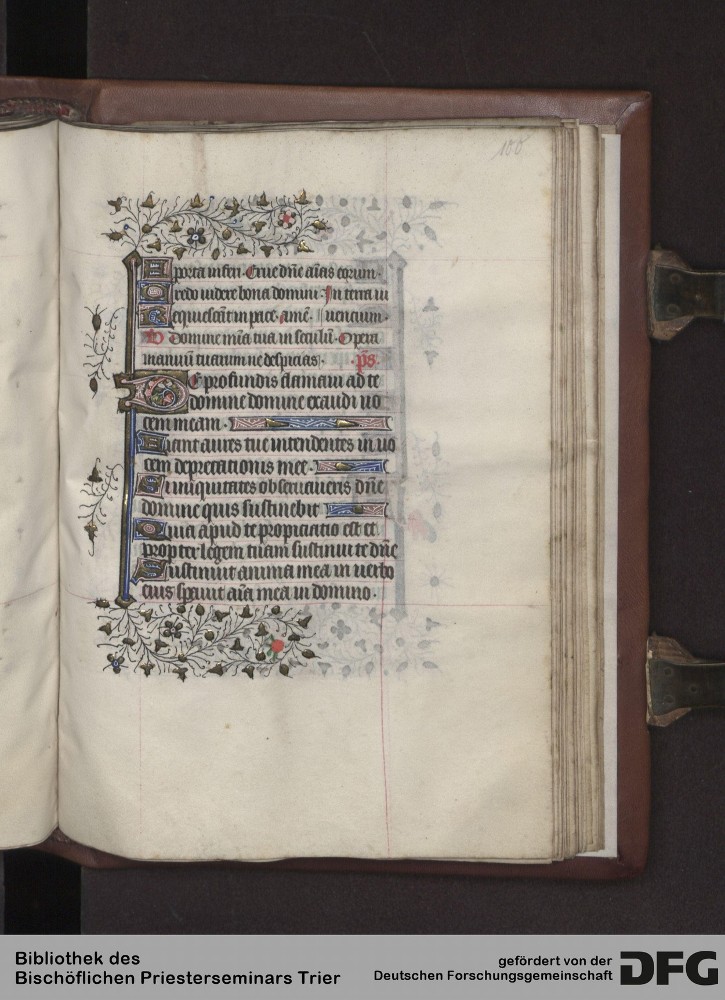 100
A porta inferi. Erue dñe aĩas eorum.
Credo videre bona domini. In terra vi
Requiescãt in pace. Amẽ. uencium.
V Domine mĩa tua in seculũ. Opera
manuũ tuarum ne despicias. ps̃.
De profundis clamavi ad te
domine domine exaudi vo
cem meam.
Fiant aures tue intendentes in vo
cem deprecationis mee.
Si iniquitates observaveris dñe
domine quis sustinebit
Quia apud te propiciatio est et
propter legem tuam sustinui te dñe
Sustinuit anima mea in verbo
eius spavit aĩa mea in domino.
Bibliothek des
Bischöflichen Priesterseminars Trier
gefördert von der
Deutschen Forschungsgemeinschaft
DFG